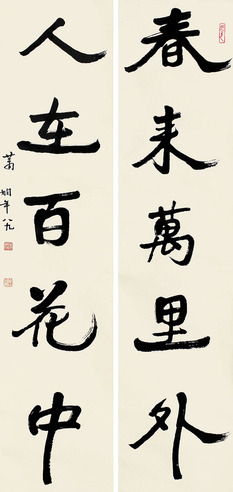 春来萬里外
人在百花中
蕭嫺年八九